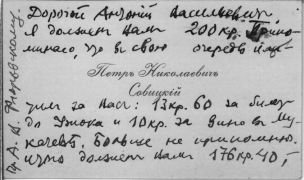 Дорогой Антоній Васильевич!
Я должен Вам 200 кр. Припо-
минаю, что въ свою очередь
Петръ Николаевичъ
Савицкій
за Вас: 13 кр. 60 за билет
до Ужока и 10 кр. за вино въ Му-
качевѣ. Больше не припомню.
должен Вам 176 кр. 40,